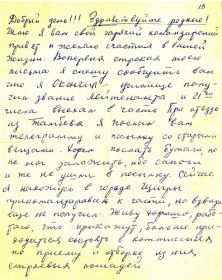 10
Добрый день!!! Здравствуйте родные!
Шлю я Вам свой горячий командирский
привет и желаю счастия в вашей
жизни. В первых строках моего
письма я спешу сообщить вам
что я окончил училище полу-
чил звание лейтенанта и
числа выехал в часть. При отъезде
из Тамбова я послал вам
телеграмму и посылку со старыми
вещами. Хотел послать бумаги, но
не мог заложить, ибо сапоги
и те не ушли в посылку. Сейчас
я нахожусь в городе Щигры
прикомандирован к части, но взвода
еще не получил. Живу хорошо, рабо-
таю, что прикажут, больше при-
ходится ходить в комиссиях
по приему и отбору из них
строевых лошадей